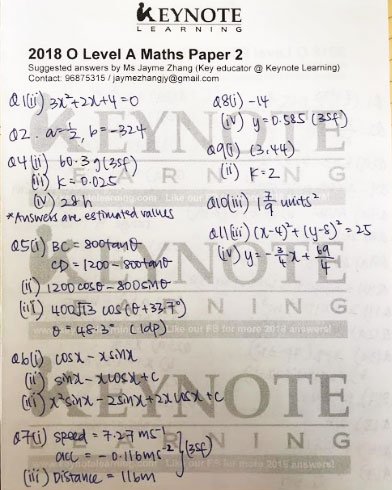 KEYNOTE
LEARNING
2018 O Level A Maths Paper 2
Suggested answers by Ms Jayme Zhang (Key educator @ Keynote Learning)
Contact: 96875315 / jaymezhangjy@gmail.com
Q1(ii) 3x²+2x+4=0
Q2. a=½, b=-324
Q4(ii) 60.3g (3sf)
(iii) k=0.025
(iv) 28h
*Answers are estimated values
Q5(i) BC = 800tanθ
CD = 1200-800tanθ
(ii) 1200cosθ-800sinθ
(iii) 400√13 cos(θ+33.7°)
θ = 48.3° (1dp)
Q6(i) cosx - xsinx
(ii) sinx - xcosx + c
(iii) x²sinx - 2sinx + 2xcosx + c
Q7(i) speed = 7.27ms⁻¹
acc = -0.116ms⁻² } (3sf)
(iii) Distance = 116m
Q8(i) -14
(iv) y=0.585 (3sf)
Q9(i) (3,44)
(ii) k=2
Q10(iii) 1 7/9 units²
Q11(iii) (x-4)²+(y-8)²=25
(iv) y=-¾x+69/4
KEYNOTE
LEARNING
Like our FB for more 2018 answers!
KEYNOTE
LEARNING
Like our FB for more 2018 answers!
KEYNOTE
LEARNING
Like our FB for more 2018 answers!